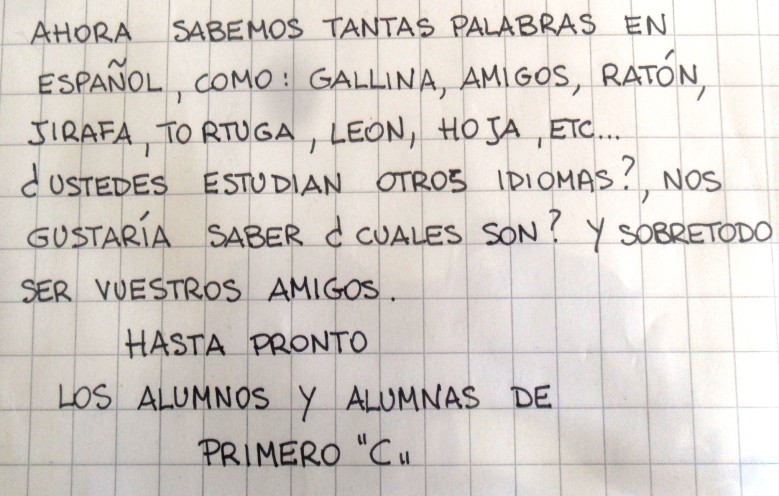 AHORA SABEMOS TANTAS PALABRAS EN
ESPAÑOL, COMO: GALLINA, AMIGOS, RATÓN,
JIRAFA, TORTUGA, LEON, HOJA, ETC...
¿USTEDES ESTUDIAN OTROS IDIOMAS?, NOS
GUSTARÍA SABER ¿CUALES SON? Y SOBRETODO
SER VUESTROS AMIGOS.
HASTA PRONTO
LOS ALUMNOS Y ALUMNAS DE
PRIMERO "C"